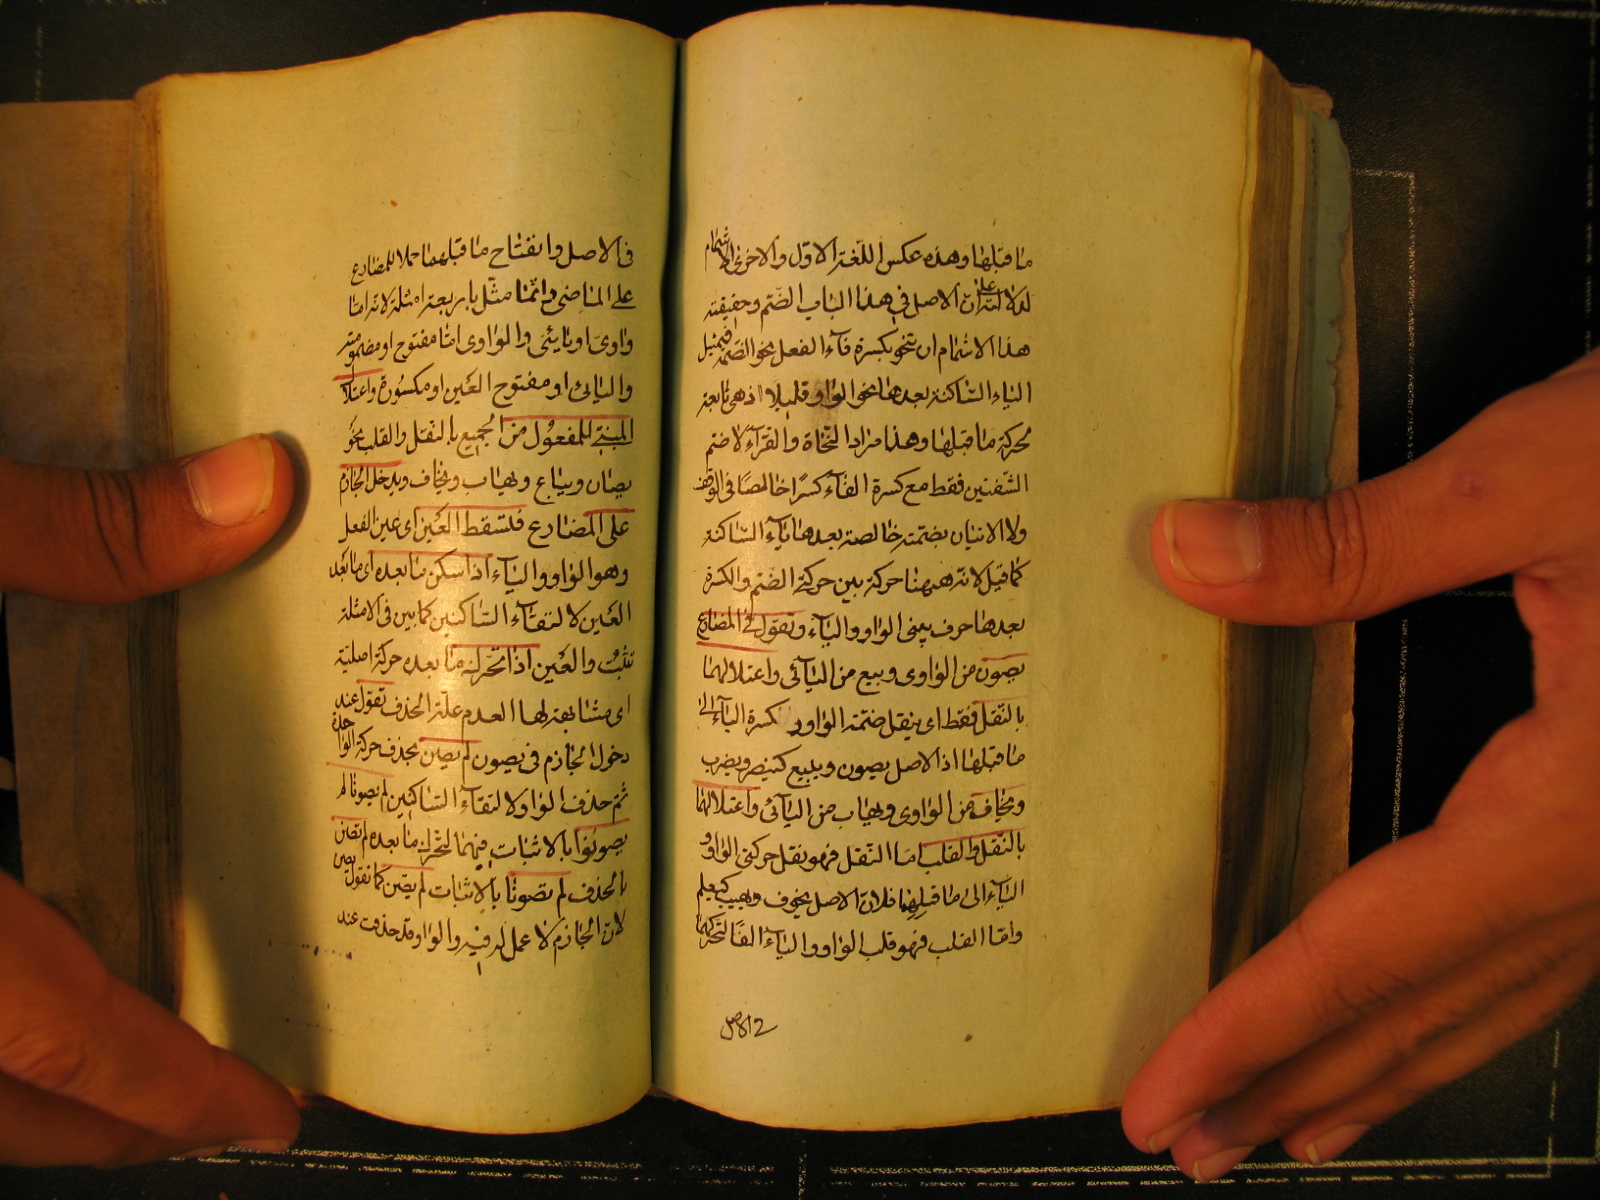 ما قبلها وهذه عكس اللغة الاول والاخرى الاشمام
للدلالة على ان الاصل في هذا الباب الضم وحقيقة
هذا الاشمام ان تنحو بكسرة فاء الفعل نحو الضمة فتميل
الياء الساكنة بعدها نحو الواو قليلا اذ هى تابعة
لحركة ما قبلها وهذا مراد النحاة والقراء لا ضم
الشفتين فقط مع كسرة الفاء كسرا خالصا فى الوقف
ولا الاتيان بضمة خالصة بعدها ياء الساكنة
كما قيل لانه ههنا حركة بين حركة الضم والكسرة
بعدها حرف بينى الواو والياء وتقول فى المضارع
يصون من الواوى ويبيع من اليائى واعتلالهما
بالنقل فقط اى بنقل ضمة الواو و كسرة الياء الى
ما قبلها اذ الاصل يصون ويبيع كينصر ويضرب
ويخاف من الواوى ويهاب من اليائى واعتلالهما
بالنقل والقلب اما النقل فهو نقل حركتى الواو و
الياء الى ما قبلهما فلان الاصل يخوف ويهيب كيعلم
واما القلب فهو قلب الواو والياء الفا لتحركهما
فى الاصل
فى الاصل وانفتاح ما قبلهما حملا للمضارع
على الماضى وانما مثل باربعة امثلة لانه اما
واوى او يائى والواوى اما مفتوح او مضمومة
واليائى او مفتوح العين او مكسورة واعتلال
المبنى للمفعول من الجميع بالنقل والقلب نحو
يصان ويباع ويهاب ويخاف ويدخل الجازم
على المضارع فتسقط العين اى عين الفعل
وهو الواو والياء اذا سكن ما بعده اى ما بعد
العين لالتقاء الساكنين كما بين فى الامثلة
تثبت والعين اذا تحرك ما بعده حركة اصلية
اى مشابهة لها العدم علة الحذف تقول عند
دخول الجازم فى يصون لم يصن بحذف حركة الواو
ثم حذف الواو لالتقاء الساكنين لم يصونا لم
يصونوا بالاثبات فيهما لتحرك ما بعده لم تصن
بالحذف لم تصونا بالاثبات لم يصن كما تقول يصن
لان الجازم لا عمل له فيه والواو قد حذفت عند